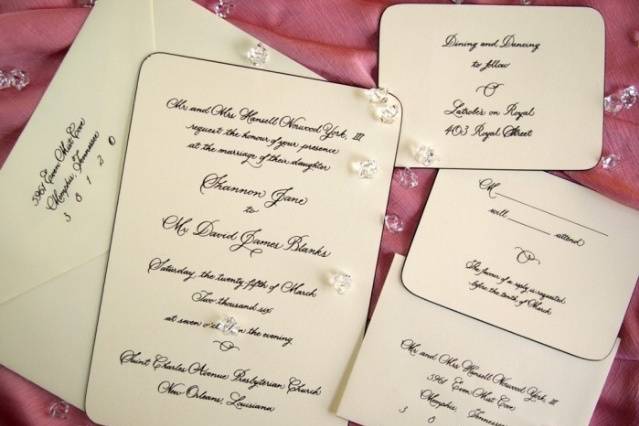 Mr. and Mrs. Hansell Norwood York, III
request the honour of your presence
at the marriage of their daughter
Shannon Jane
to
Mr. David James Blanks
Saturday the twenty fifth of March
Two thousand six
at seven in the evening
Saint Charles Avenue Presbyterian Church
New Orleans, Louisiana
Dining and Dancing
to follow
Latrobe's on Royal
403 Royal Street
M
will attend
The favour of a reply is requested
before the tenth of March
Mr. and Mrs. Hansell Norwood York, III
5961 Even Mist Cove
Memphis, Tennessee
3 8
5961 Even Mist Cove
Memphis, Tennessee
3 8 1 2 0